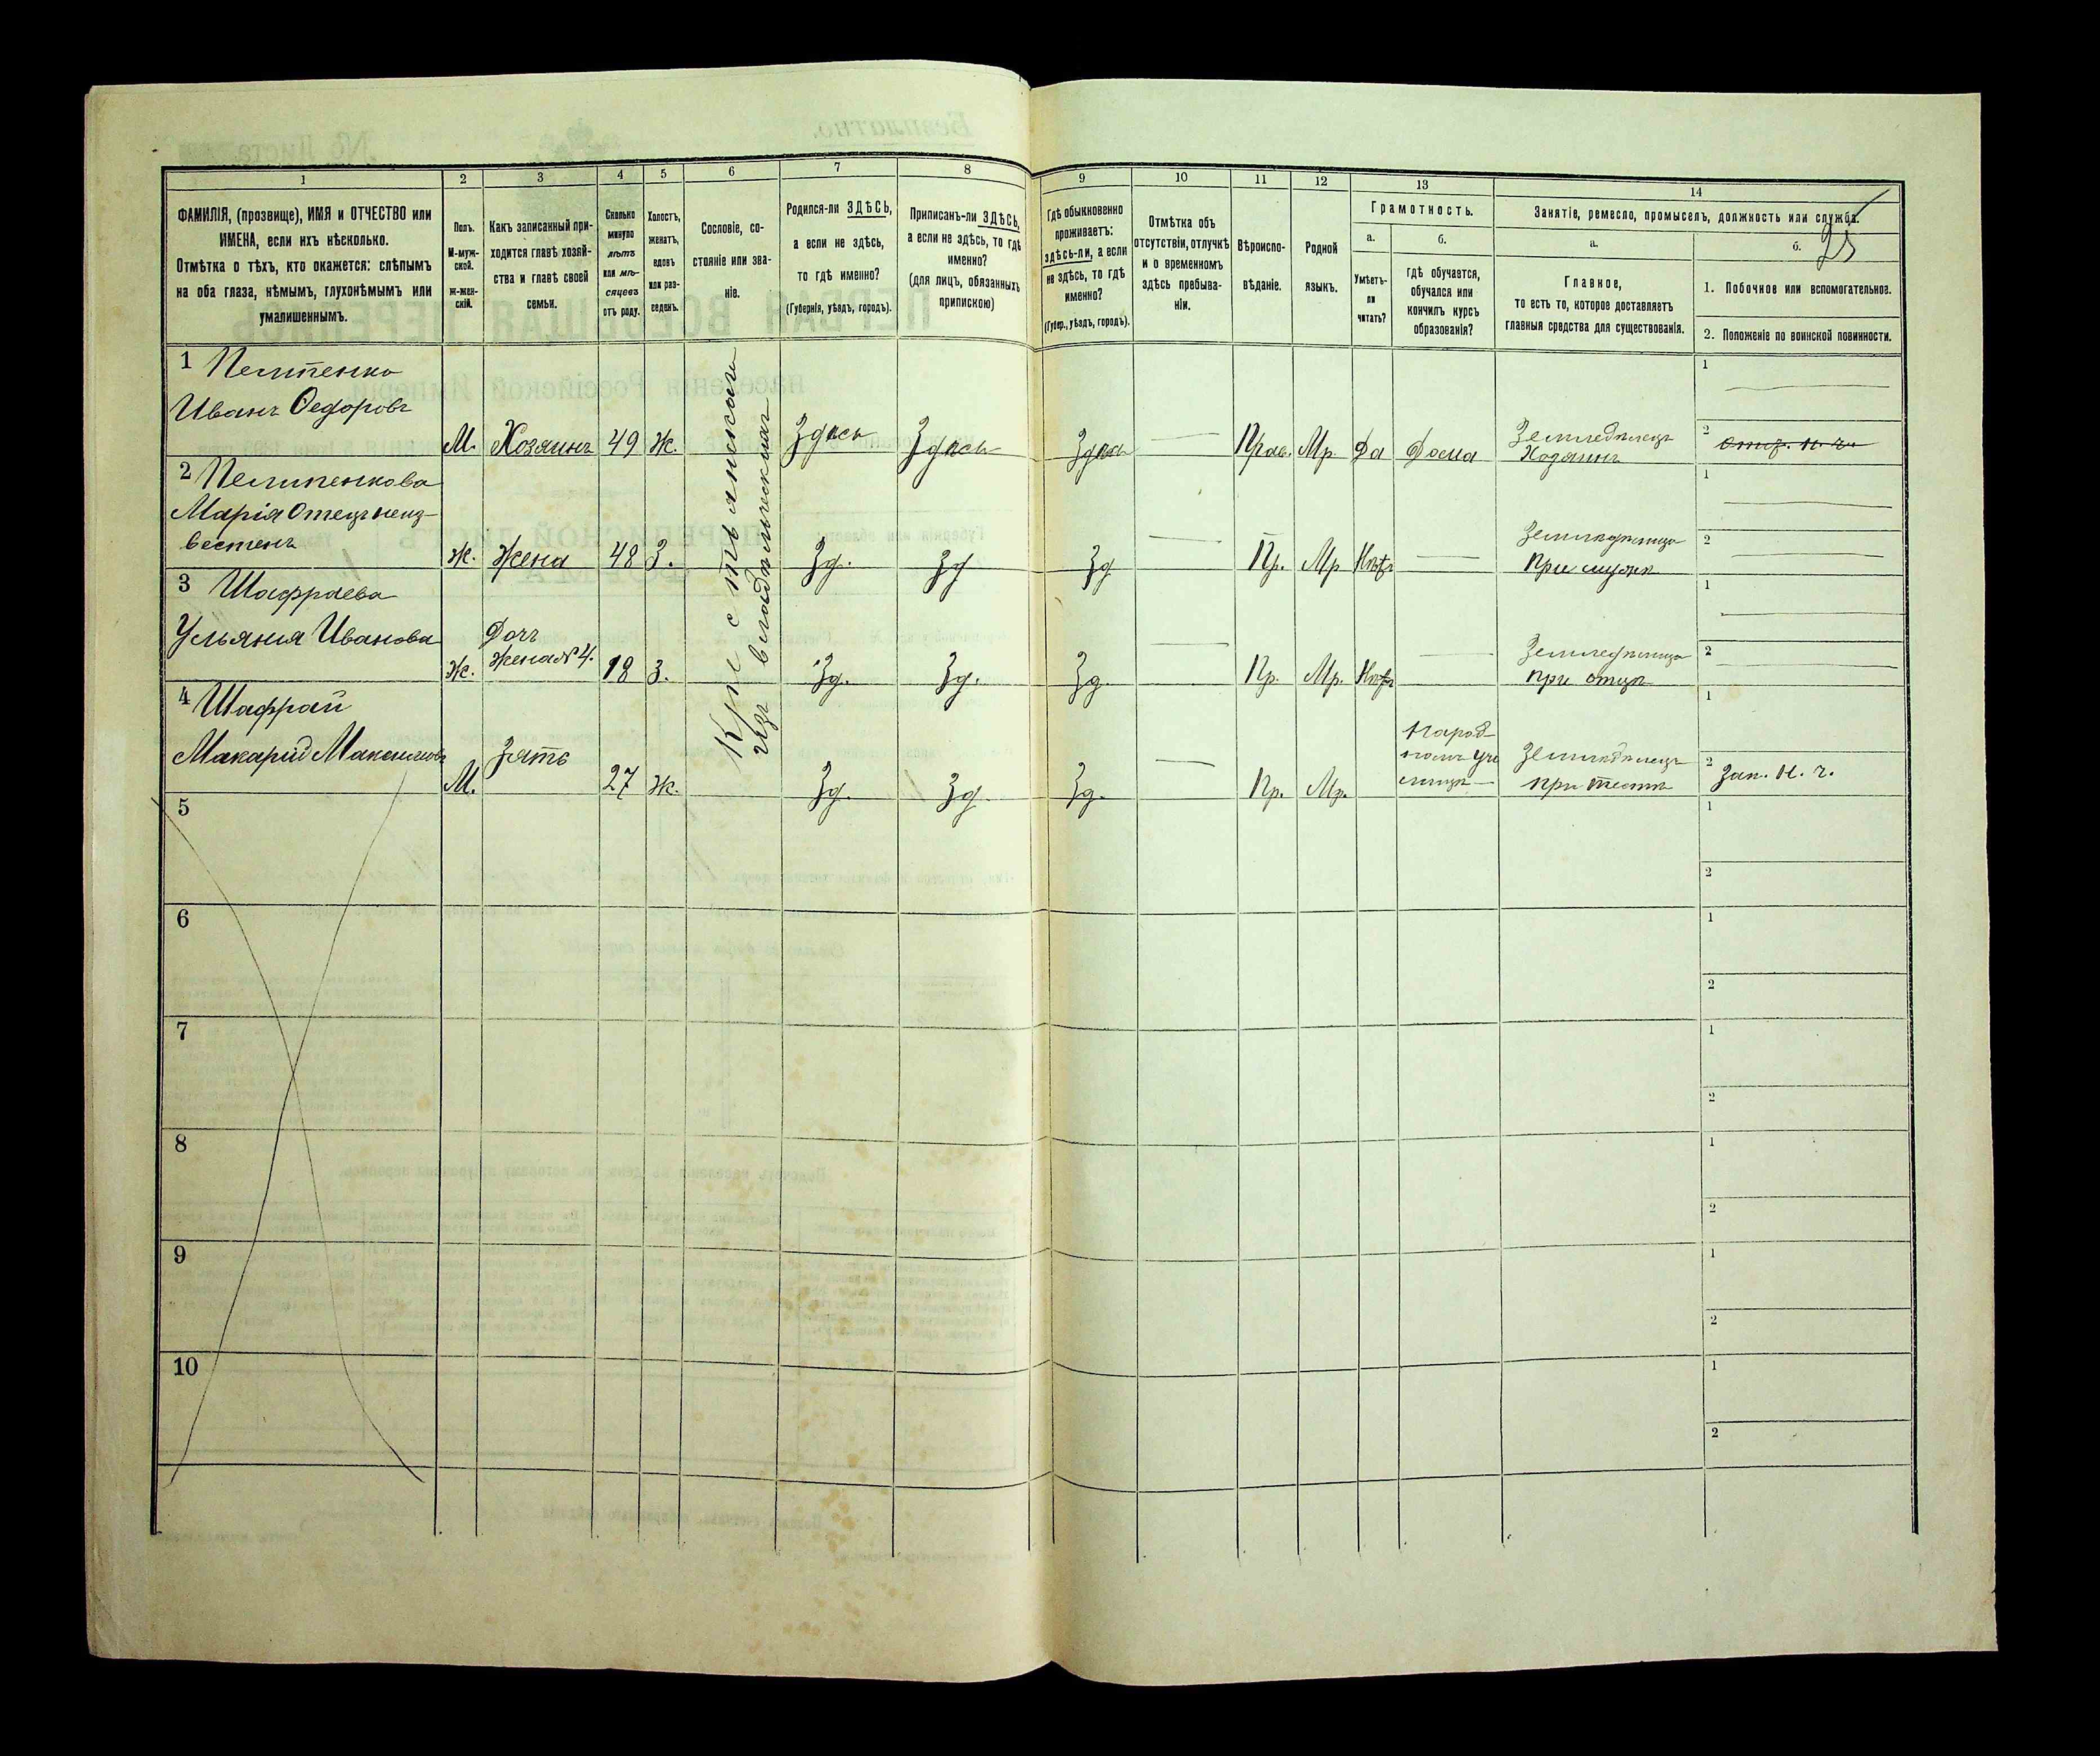 1 2 3 4 5 6 7 8 9 10 11 12 13 14
ФАМИЛІЯ, (прозвище), ИМЯ и ОТЧЕСТВО или
ИМЕНА, если ихъ нѣсколько.
Отмѣтка о тѣхъ, кто окажется: слѣпымъ
на оба глаза, нѣмымъ, глухонѣмымъ или
умалишеннымъ.
Полъ.
М-муж-
ской.
Ж-жен-
скій.
Какъ записанный при-
ходится главѣ хозяй-
ства и главѣ своей
семьи.
Сколько
минуло
лѣтъ
или мѣ-
сяцевъ
отъ роду.
Холостъ,
женатъ,
вдовъ
или раз-
веденъ.
Сословіе, со-
стояніе или зва-
ніе.
Родился-ли ЗДѢСЬ,
а если не здѣсь,
то гдѣ именно?
(Губернія, уѣздъ, городъ).
Приписанъ-ли ЗДѢСЬ,
а если не здѣсь, то гдѣ
именно?
(для лицъ, обязанныхъ
припискою)
Гдѣ обыкновенно
проживаетъ:
здѣсь-ли, а если
не здѣсь, то гдѣ
именно?
(Губер., уѣздъ, городъ).
Отмѣтка объ
отсутствіи, отлучкѣ
и о временномъ
здѣсь пребыва-
ніи.
Вѣроиспо-
вѣданіе.
Родной
языкъ.
Грамотность.
а.
Умѣетъ-
ли
читать?
б.
Гдѣ обучается,
обучался или
кончилъ курсъ
образованія?
Занятіе, ремесло, промыселъ, должность или служба.
25
а.
Главное,
то есть то, которое доставляетъ
главныя средства для существованія.
б.
1. Побочное или вспомогательное.
2. Положеніе по воинской повинности.
1 Пелипенко
Иванъ Ѳедоровъ
М. Хозяинъ 49 Ж.
Крестьянинъ
изъ владѣльческихъ
Здѣсь Здѣсь Здѣсь — Прав. Мр. Да Дома
Земледѣлецъ
Хозяинъ
1 —
2 отст. н. ч.
2 Пелипенкова
Марія Отецъ неиз-
вестенъ
Ж. Жена 48 З. Зд. Зд Зд — Пр. Мр Нѣтъ —
Земледѣлица
При мужѣ
1 —
2 —
3 Шафраева
Ульянія Иванова
Ж.
Дочь
Жена №4.
18 З. Зд. Зд. Зд. — Пр. Мр. Нѣтъ —
Земледѣлица
при отцѣ
1 —
2 —
4 Шафрай
Макарій Максимовъ
М. Зять 27 Ж. Зд. Зд. Зд. — Пр. Мр.
Народ-
номъ учи
лищѣ
Земледѣлецъ
при тестѣ
1
2 Зап. н. ч.
5 1
2
6 1
2
7 1
2
8 1
2
9 1
2
10 1
2